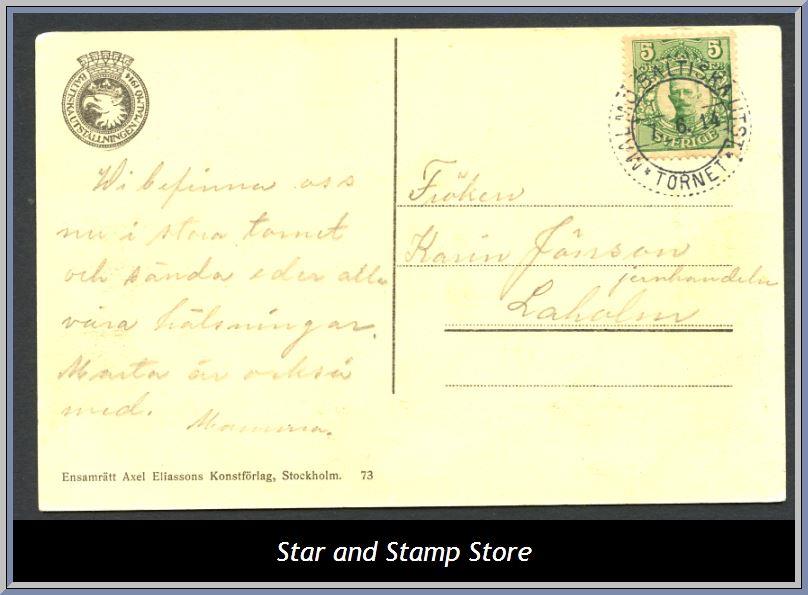 BALTISKA UTSTÄLLNINGEN MALMÖ 1914
Wi befinna oss
nu i stora tornet
och sända eder alla
våra hälsningar.
Marta är också
med. Mamma.
Ensamrätt Axel Eliassons Konstförlag, Stockholm. 73
5 5
SVERIGE
MALMÖ BALTISKA UTST.
6. 14
* TORNET *
Fröken
Karin Jönson
jernhandeln
Laholm
Star and Stamp Store